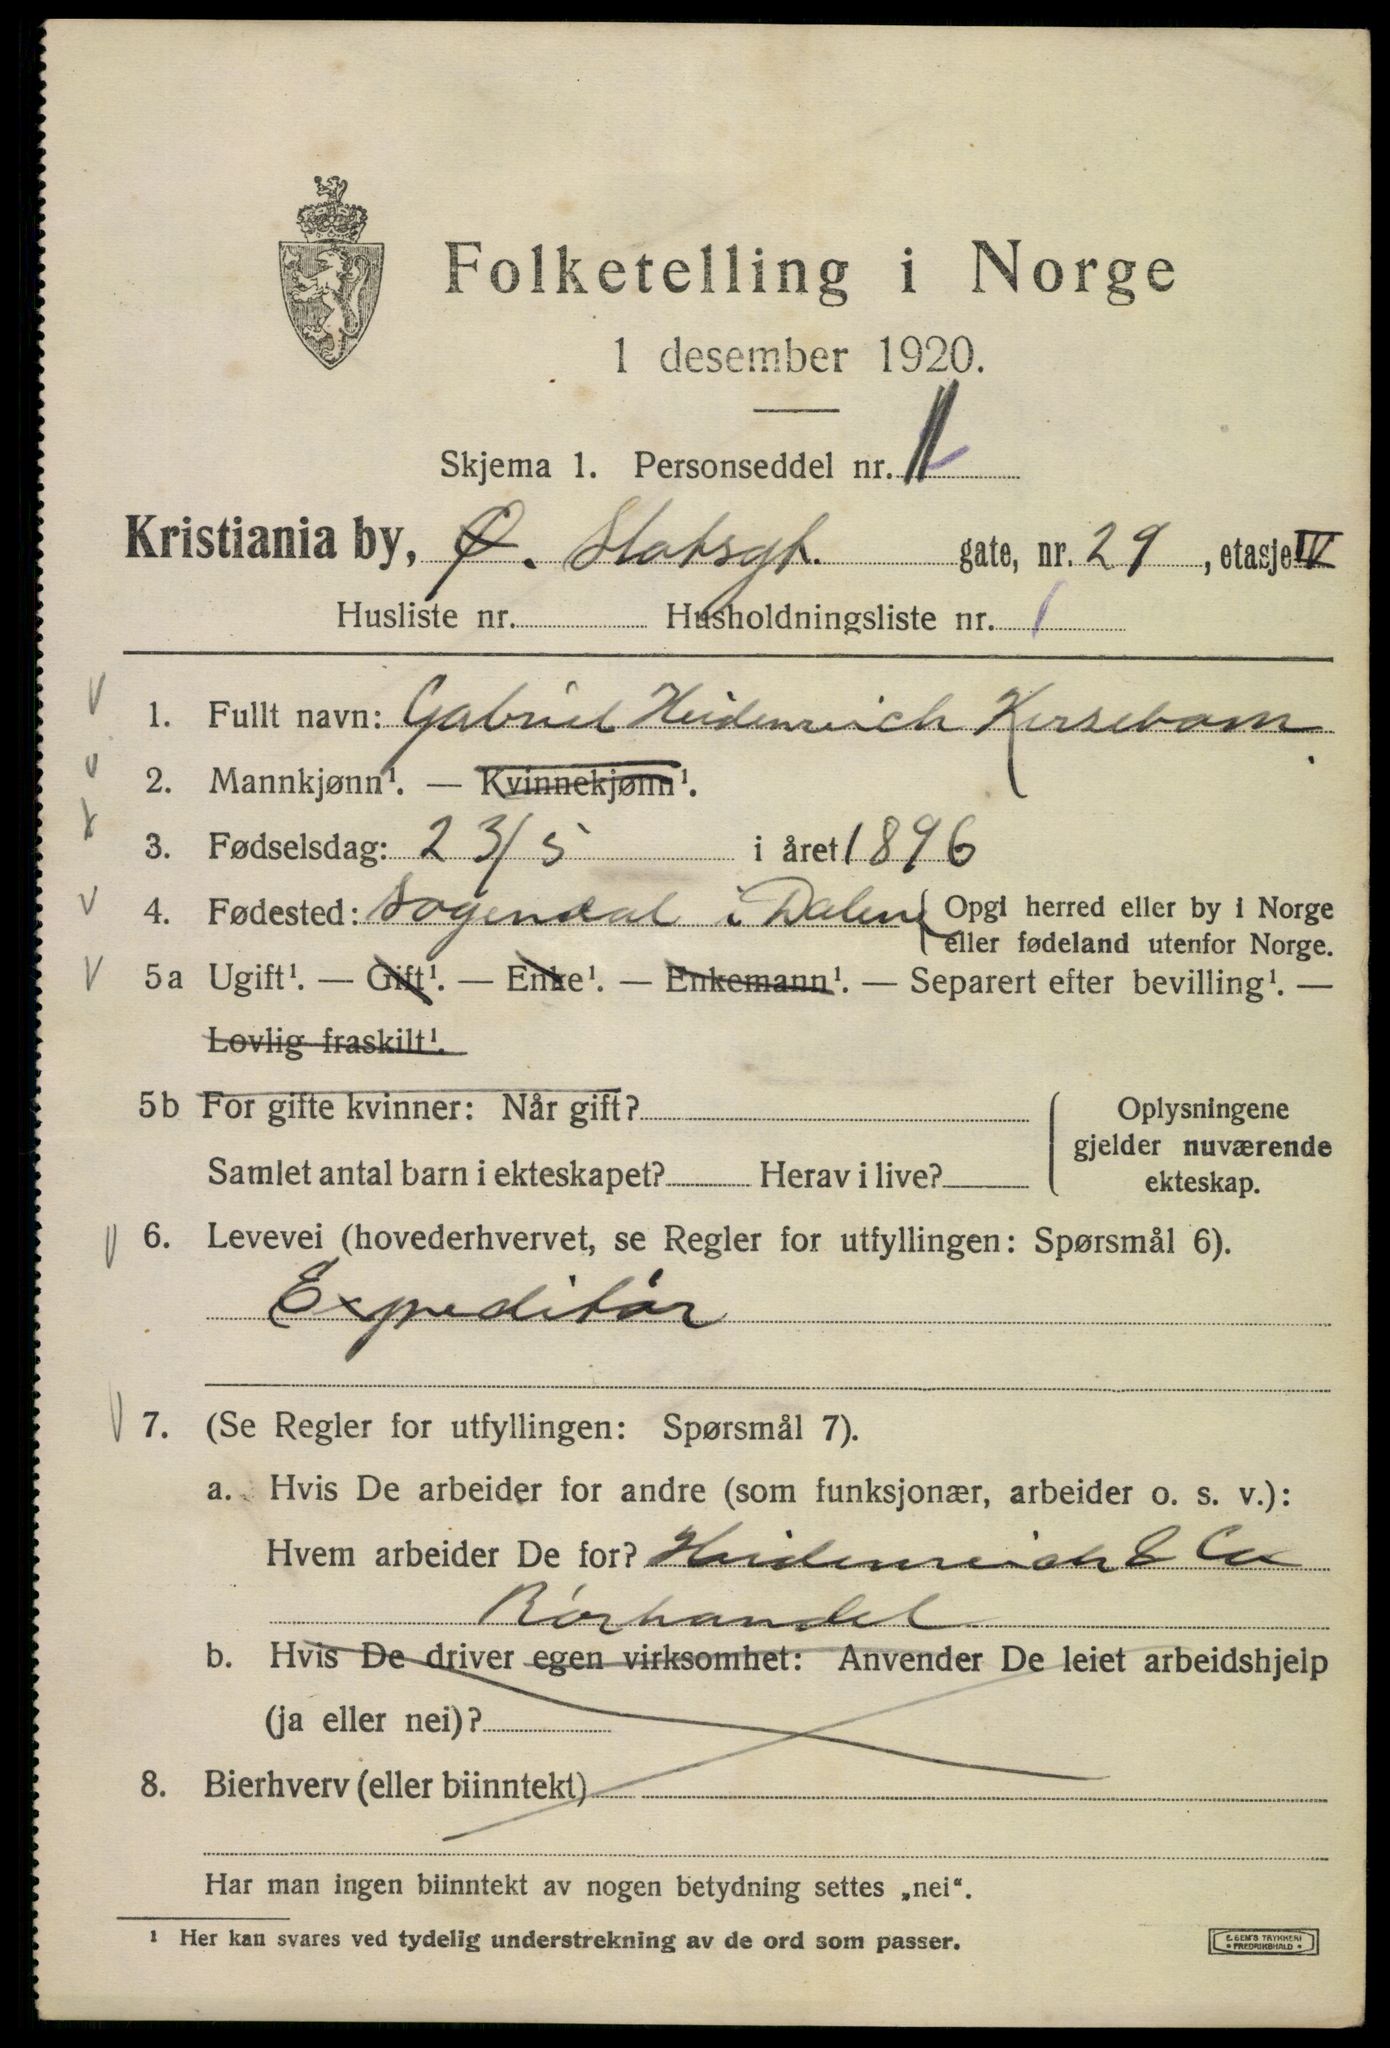 Folketelling i Norge
1 desember 1920.
Skjema 1. Personseddel nr.
Kristiania by, Ø. Slotsgt. gate, nr. 29, etasje IV
Husliste nr. Husholdningsliste nr. 1
1. Fullt navn: Gabriel Heidenreich Kersebom
2. Mannkjønn¹. — Kvinnekjønn¹.
3. Fødselsdag: 23/5 i året 1896
4. Fødested: Sogendal i Dalene { Opgi herred eller by i Norge
eller fødeland utenfor Norge.
5a Ugift¹. — Gift¹. — Enke¹. — Enkemann¹. — Separert efter bevilling¹. —
Lovlig fraskilt¹.
5b For gifte kvinner: Når gift? { Oplysningene
gjelder nuværende
Samlet antal barn i ekteskapet? Herav i live? ekteskap.
6. Levevei (hovederhvervet, se Regler for utfyllingen: Spørsmål 6).
Expeditør
7. (Se Regler for utfyllingen: Spørsmål 7).
a. Hvis De arbeider for andre (som funksjonær, arbeider o. s. v.):
Hvem arbeider De for? Heidenreich & Co
Rørhandel
b. Hvis De driver egen virksomhet: Anvender De leiet arbeidshjelp
(ja eller nei)?
8. Bierhverv (eller biinntekt)
Har man ingen biinntekt av nogen betydning settes „nei“.
¹ Her kan svares ved tydelig understrekning av de ord som passer.
E. SEM'S TRYKKERI
• FREDRIKSHALD •